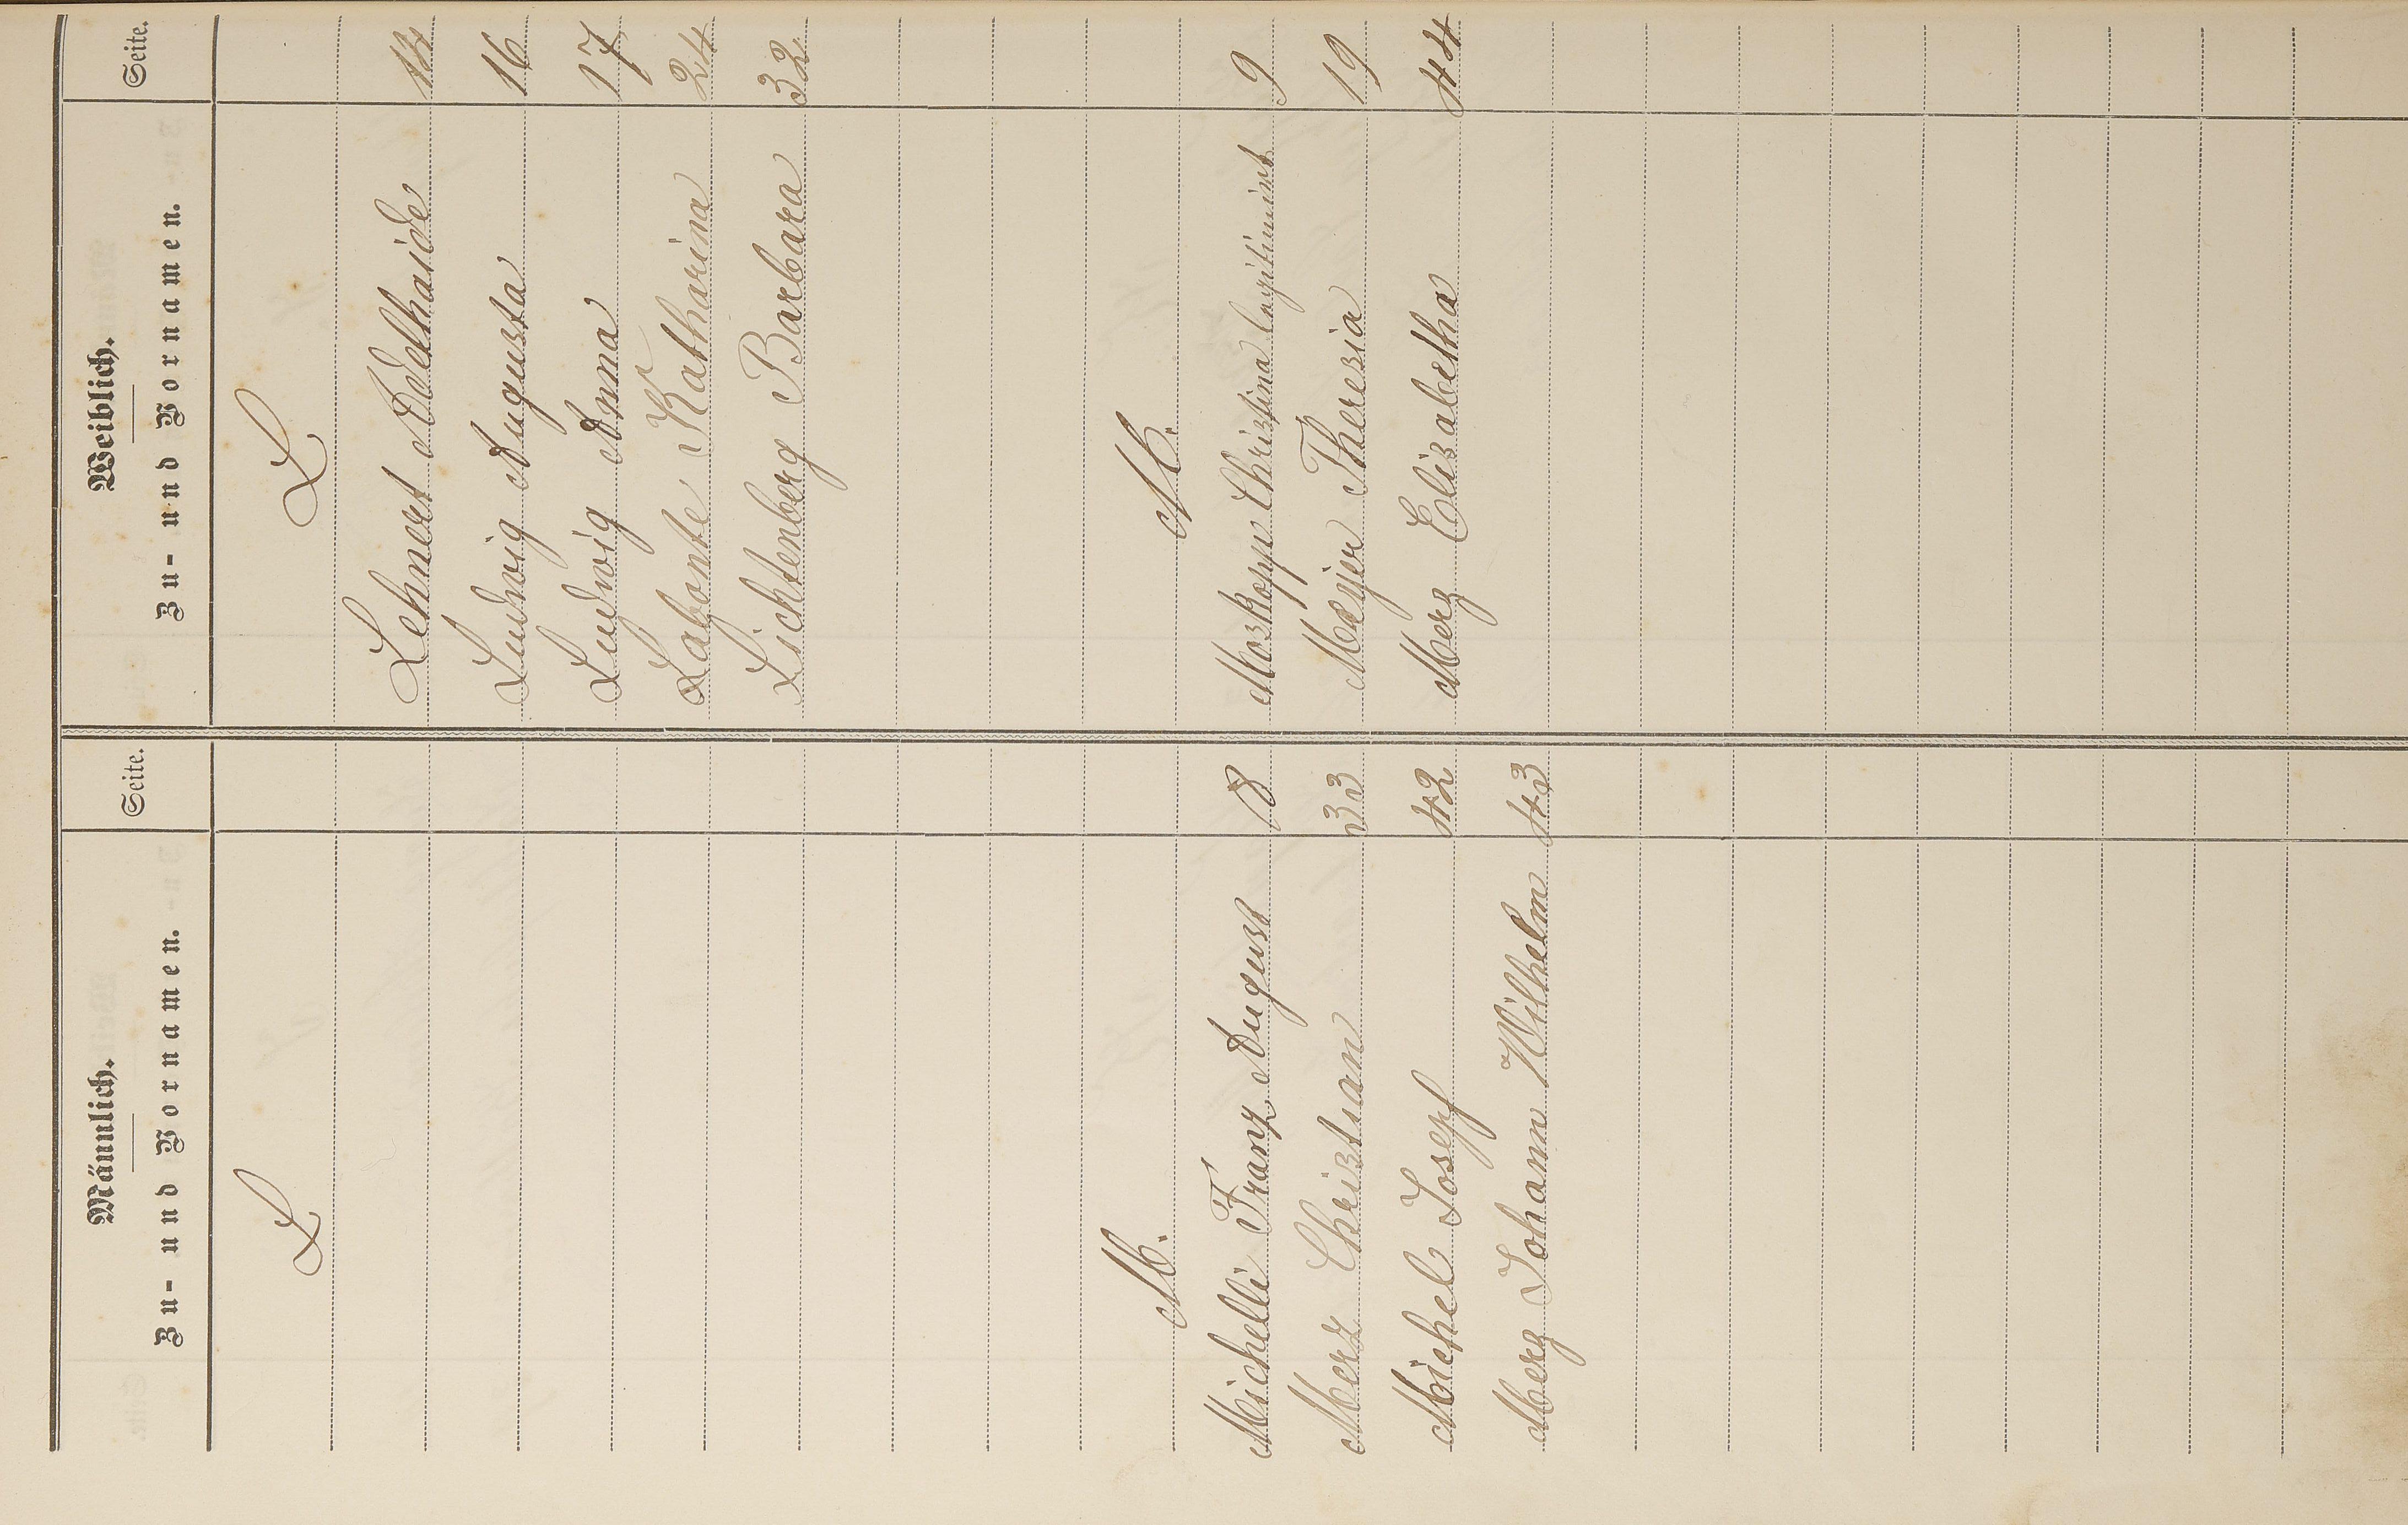 Männlich. Weiblich.
Zu- und Vornamen. Seite. Zu- und Vornamen. Seite.
L L
Lehnert Adelhaide 14
Ludwig Augusta 16
Ludwig Anna 17
Lafonte Katharina 24
Lichtenberg Barbara 32
M. M.
Michelli Franz August 8 Moskopp Christina legitimirt 9
Merz Christian 33 Meyer Theresia 19
Michel Josepf 42 Merz Elisabetha 44
Merz Johann Wilhelm 43